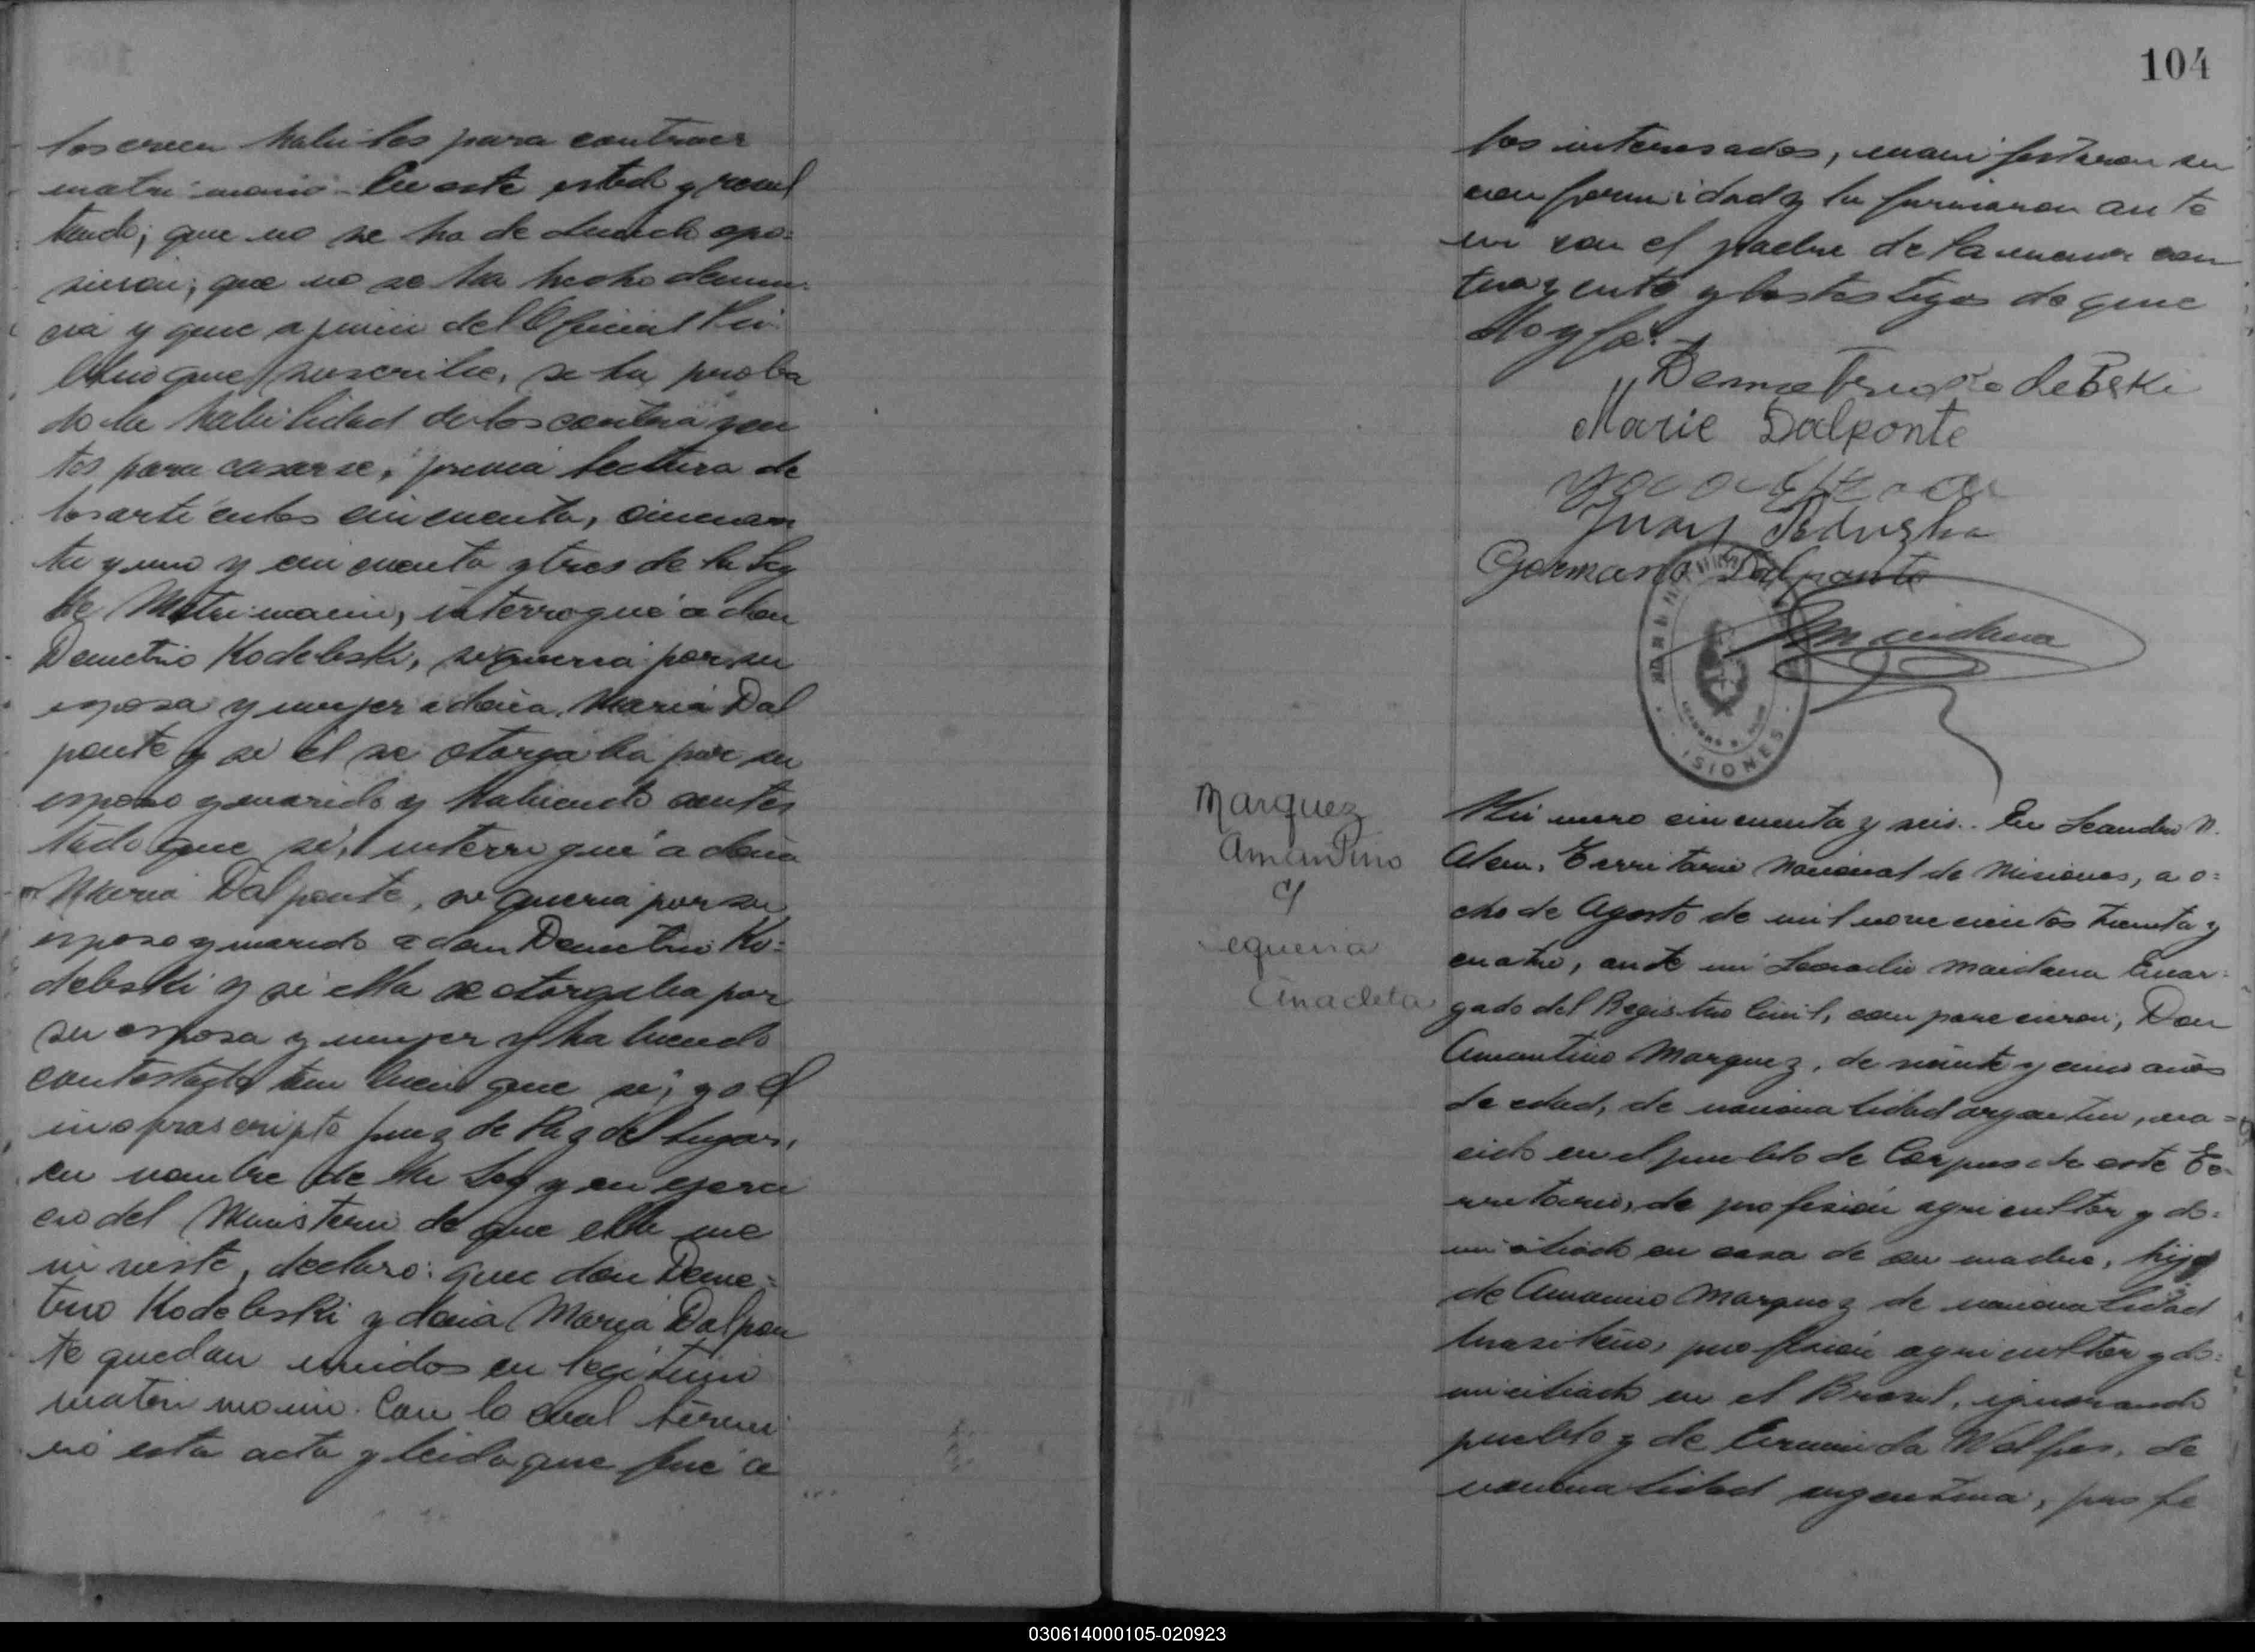 los creen habiles para contraer
matrimonio. En este estado y resul
tando; que no se ha deducido opo=
sicion; que no se ha hecho denun-
cia y que a juicio del Oficial Pú-
blico que suscribe, se ha proba
do la habilidad de los contrayen
tes para casarse, previa lectura de
los articulos cincuenta, cincuen
ta y uno y cincuenta y tres de la Ley
de Matrimonio, interrogué a don
Demetrio Kodebski, si queria por su
esposa y mujer a doña Maria Dal
ponte y si él se otorgaba por su
esposo y marido y habiendo contes
tado que si, interrogué a doña
Maria Dalponte, si queria por su
esposo y marido a don Demetrio Ko=
debski y si ella se otorgaba por
su esposa y mujer y habiendo
contestado tambien que si; yo el
infrascripto Juez de Paz del Lugar,
en nombre de la Ley y en ejerci
cio del Ministerio de que ella me
inviste, declaro: que don Deme=
trio Kodebski y doña Maria Dalpon
te quedan unidos en legitimo
matrimonio. Con lo cual termi
nó esta acta y leida que fué a
104
los interesados, manifestaron su
conformidad y la firmaron ante
mi con el padre de la menor con
trayente y los testigos de que
doy fé.
Demetrio Kodebski
Marie Dalponte
Juan
Germano Dalponte
Maidana
MISIONES
Marquez
Amantino
y
equeira
Anacleta
Número cincuenta y seis.. En Leandro N.
Alem, Territorio Nacional de Misiones, a o=
cho de Agosto de mil novecientos treinta y
cuatro, ante mi Leocadio Maidana Encar=
gado del Registro Civil, comparecieron; Don
Amantino Marquez, de veinte y cinco años
de edad, de nacionalidad argentin, na=
cido en el pueblo de Corpus de este Te-
rritorio, de profesión agricultor y do=
miciliado en casa de su madre, hijo
de Amancio Marquez de nacionalidad
brasileño, profesión agricultor y do=
miciliado en el Brasil, ignorando
pueblo y de de
nacionalidad argentina, profe
030614000105-020923